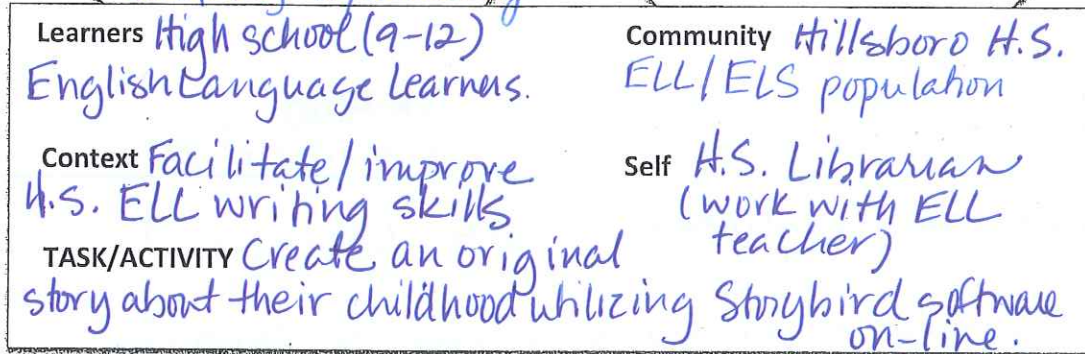 Learners High school (9-12)
English Language Learners.
Community Hillsboro H.S.
ELL/ELS population
Context Facilitate/improve
H.S. ELL writing skills
Self H.S. Librarian
(work with ELL
teacher)
TASK/ACTIVITY Create an original
story about their childhood utilizing Storybird software
on-line.